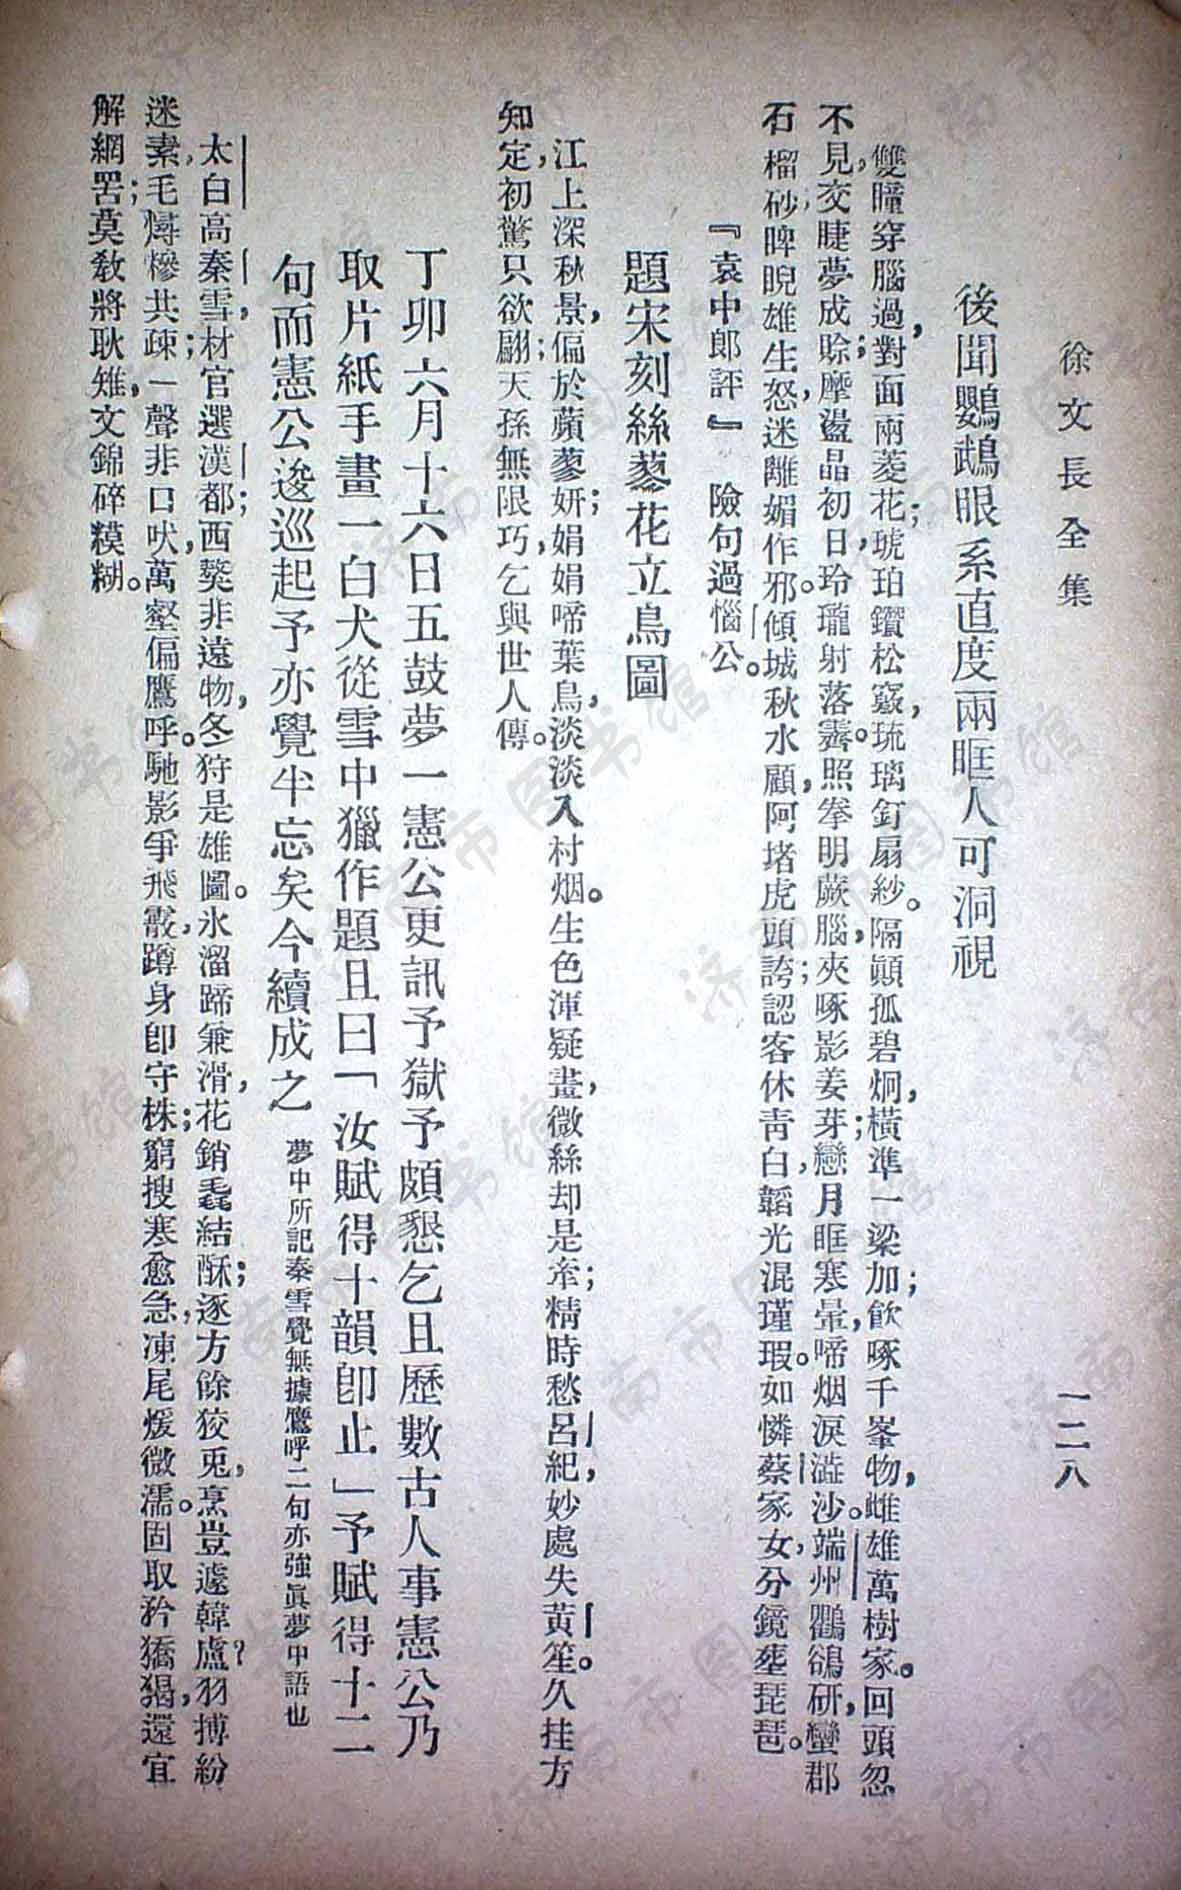 徐文長全集
一二八
後聞鸚鵡眼系直度兩眶人可洞視
雙瞳穿腦過,對面兩菱花;琥珀鑽松竅,琉璃釘扇紗。隔顚孤碧炯,橫準一梁加;飮啄千峯物,雌雄萬樹家。回頭忽
不見,交睫夢成賒;摩盪晶初日,玲瓏射落霽。照拳明蕨腦,夾啄影姜芽;戀月眶寒暈,啼烟淚溢沙。端州鸜鵒研,蠻郡
石榴砂;睥睨雄生怒,迷離媚作邪。傾城秋水顧,阿堵虎頭誇;認客休靑白,韜光混瑾瑕。如憐蔡家女,分鏡塟琵琶。
『袁中郎評』 險句過惱公。
題宋刻絲蓼花立鳥圖
江上深秋景,偏於蘋蓼妍;娟娟啼葉鳥,淡淡入村烟。生色渾疑畫,微絲却是牽;精時愁呂紀,妙處失黃筌。久挂方
知定,初驚只欲翩;天孫無限巧,乞與世人傳。
丁卯六月十六日五鼓夢一憲公更訊予獄予頗懇乞且歷數古人事憲公乃
取片紙手畫一白犬從雪中獵作題且曰「汝賦得十韻卽止」予賦得十二
句而憲公逡巡起予亦覺半忘矣今續成之 夢中所記秦雪覺無據鷹呼二句亦強眞夢中語也
太白高秦雪,材官選漢都;西獒非遠物,冬狩是雄圖。氷溜蹄兼滑,花銷毳結酥;逐方餘狡兎,烹豈遽韓盧?羽搏紛
迷素,毛㩻糝共疎;一聲非口吠,萬壑偏鷹呼。馳影爭飛霰,蹲身卽守株;窮搜寒愈急,凍尾煖微濡。固取矜獢猲,還宜
解網罟;莫敎將耿雉,文錦碎糢糊。